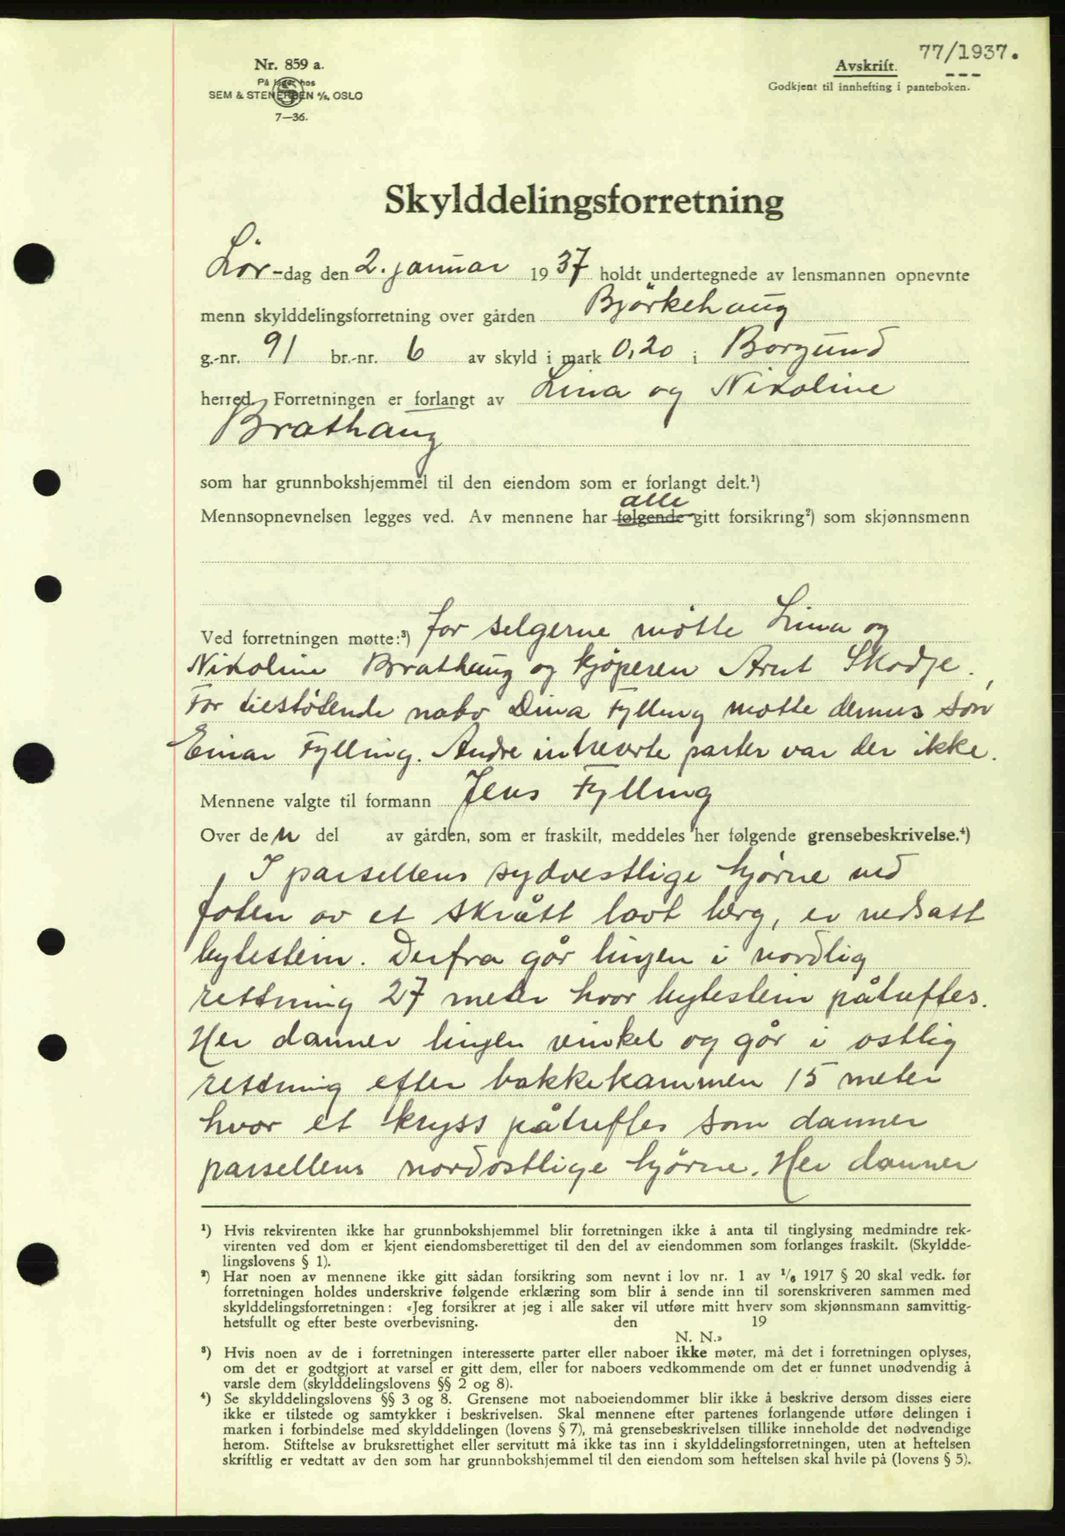 77/1937.
Nr. 859 a.
På lager hos
SEM & STENERSEN A/S, OSLO
7—36.
Avskrift.
Godkjent til innhefting i panteboken.
Skylddelingsforretning
Lör-dag den 2. januar 1937 holdt undertegnede av lensmannen opnevnte
menn skylddelingsforretning over gården Björkehaug
g.-nr. 91 br.-nr. 6 av skyld i mark 0,20 i Borgund
herred. Forretningen er forlangt av Lina og Nikoline
Brathaug
som har grunnbokshjemmel til den eiendom som er forlangt delt.¹)
alle
Mennsopnevnelsen legges ved. Av mennene har følgende gitt forsikring²) som skjønnsmenn
Ved forretningen møtte:³) for selgerne møtte Lina og
Nikoline Brathaug og kjøperen Arnt Skodje.
For tilstøtende nabo Dina Fylling møtte dennes sön
Einar Fylling. Andre intreserte parter var der ikke.
Mennene valgte til formann Jens Fylling
Over den del av gården, som er fraskilt, meddeles her følgende grensebeskrivelse.⁴)
I parsellens sydvestlige hjørne ved
foten av et skrått lavt berg, er nedsatt
bytestein. Derfra går linjen i nordlig
rettning 27 meter hvor bytestein påtreffes.
Her danner linjen vinkel og går i østlig
rettning efter bakkekammen 15 meter
hvor et kryss påtreffes som danner
parsellens nordøstlige hjørne. Her danner
¹) Hvis rekvirenten ikke har grunnbokshjemmel blir forretningen ikke å anta til tinglysing medmindre rek-
virenten ved dom er kjent eiendomsberettiget til den del av eiendommen som forlanges fraskilt. (Skyldde-
lingslovens § 1).
²) Har noen av mennene ikke gitt sådan forsikring som nevnt i lov nr. 1 av 1/6 1917 § 20 skal vedk. før
forretningen holdes underskrive følgende erklæring som blir å sende inn til sorenskriveren sammen med
skylddelingsforretningen: «Jeg forsikrer at jeg i alle saker vil utføre mitt hverv som skjønnsmann samvittig-
hetsfullt og efter beste overbevisning. den 19
N. N.»
³) Hvis noen av de i forretningen interesserte parter eller naboer ikke møter, må det i forretningen oplyses,
om det er godtgjort at varsel er gitt dem, eller for naboers vedkommende om det er funnet unødvendig å
varsle dem (skylddelingslovens §§ 2 og 8).
⁴) Se skylddelingslovens §§ 3 og 8. Grensene mot naboeiendommer blir ikke å beskrive dersom disses eiere
ikke er tilstede og samtykker i beskrivelsen. Skal mennene efter partenes forlangende utføre delingen i
marken i forbindelse med skylddelingen (lovens § 7), må grensebeskrivelsen tillike inneholde det nødvendige
herom. Stiftelse av bruksrettighet eller servitutt må ikke tas inn i skylddelingsforretningen, uten at heftelsen
skriftlig er vedtatt av den som har grunnbokshjemmel til den eiendom som heftelsen skal hvile på (lovens § 5).